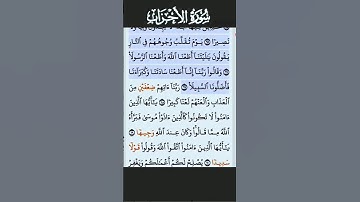 سُورَةُ الأَحْزَابِ
نَصِيرًا ۝ يَوْمَ تُقَلَّبُ وُجُوهُهُمْ فِي ٱلنَّارِ
يَقُولُونَ يَٰلَيْتَنَآ أَطَعْنَا ٱللَّهَ وَأَطَعْنَا ٱلرَّسُولَا۠
۝ وَقَالُوا۟ رَبَّنَآ إِنَّآ أَطَعْنَا سَادَتَنَا وَكُبَرَآءَنَا
فَأَضَلُّونَا ٱلسَّبِيلَا۠ ۝ رَبَّنَآ ءَاتِهِمْ ضِعْفَيْنِ مِنَ
ٱلْعَذَابِ وَٱلْعَنْهُمْ لَعْنًا كَبِيرًا ۝ يَٰٓأَيُّهَا ٱلَّذِينَ
ءَامَنُوا۟ لَا تَكُونُوا۟ كَٱلَّذِينَ ءَاذَوْا۟ مُوسَىٰ فَبَرَّأَهُ
ٱللَّهُ مِمَّا قَالُوا۟ وَكَانَ عِندَ ٱللَّهِ وَجِيهًا ۝
يَٰٓأَيُّهَا ٱلَّذِينَ ءَامَنُوا۟ ٱتَّقُوا۟ ٱللَّهَ وَقُولُوا۟ قَوْلًا
سَدِيدًا ۝ يُصْلِحْ لَكُمْ أَعْمَٰلَكُمْ وَيَغْفِرْ